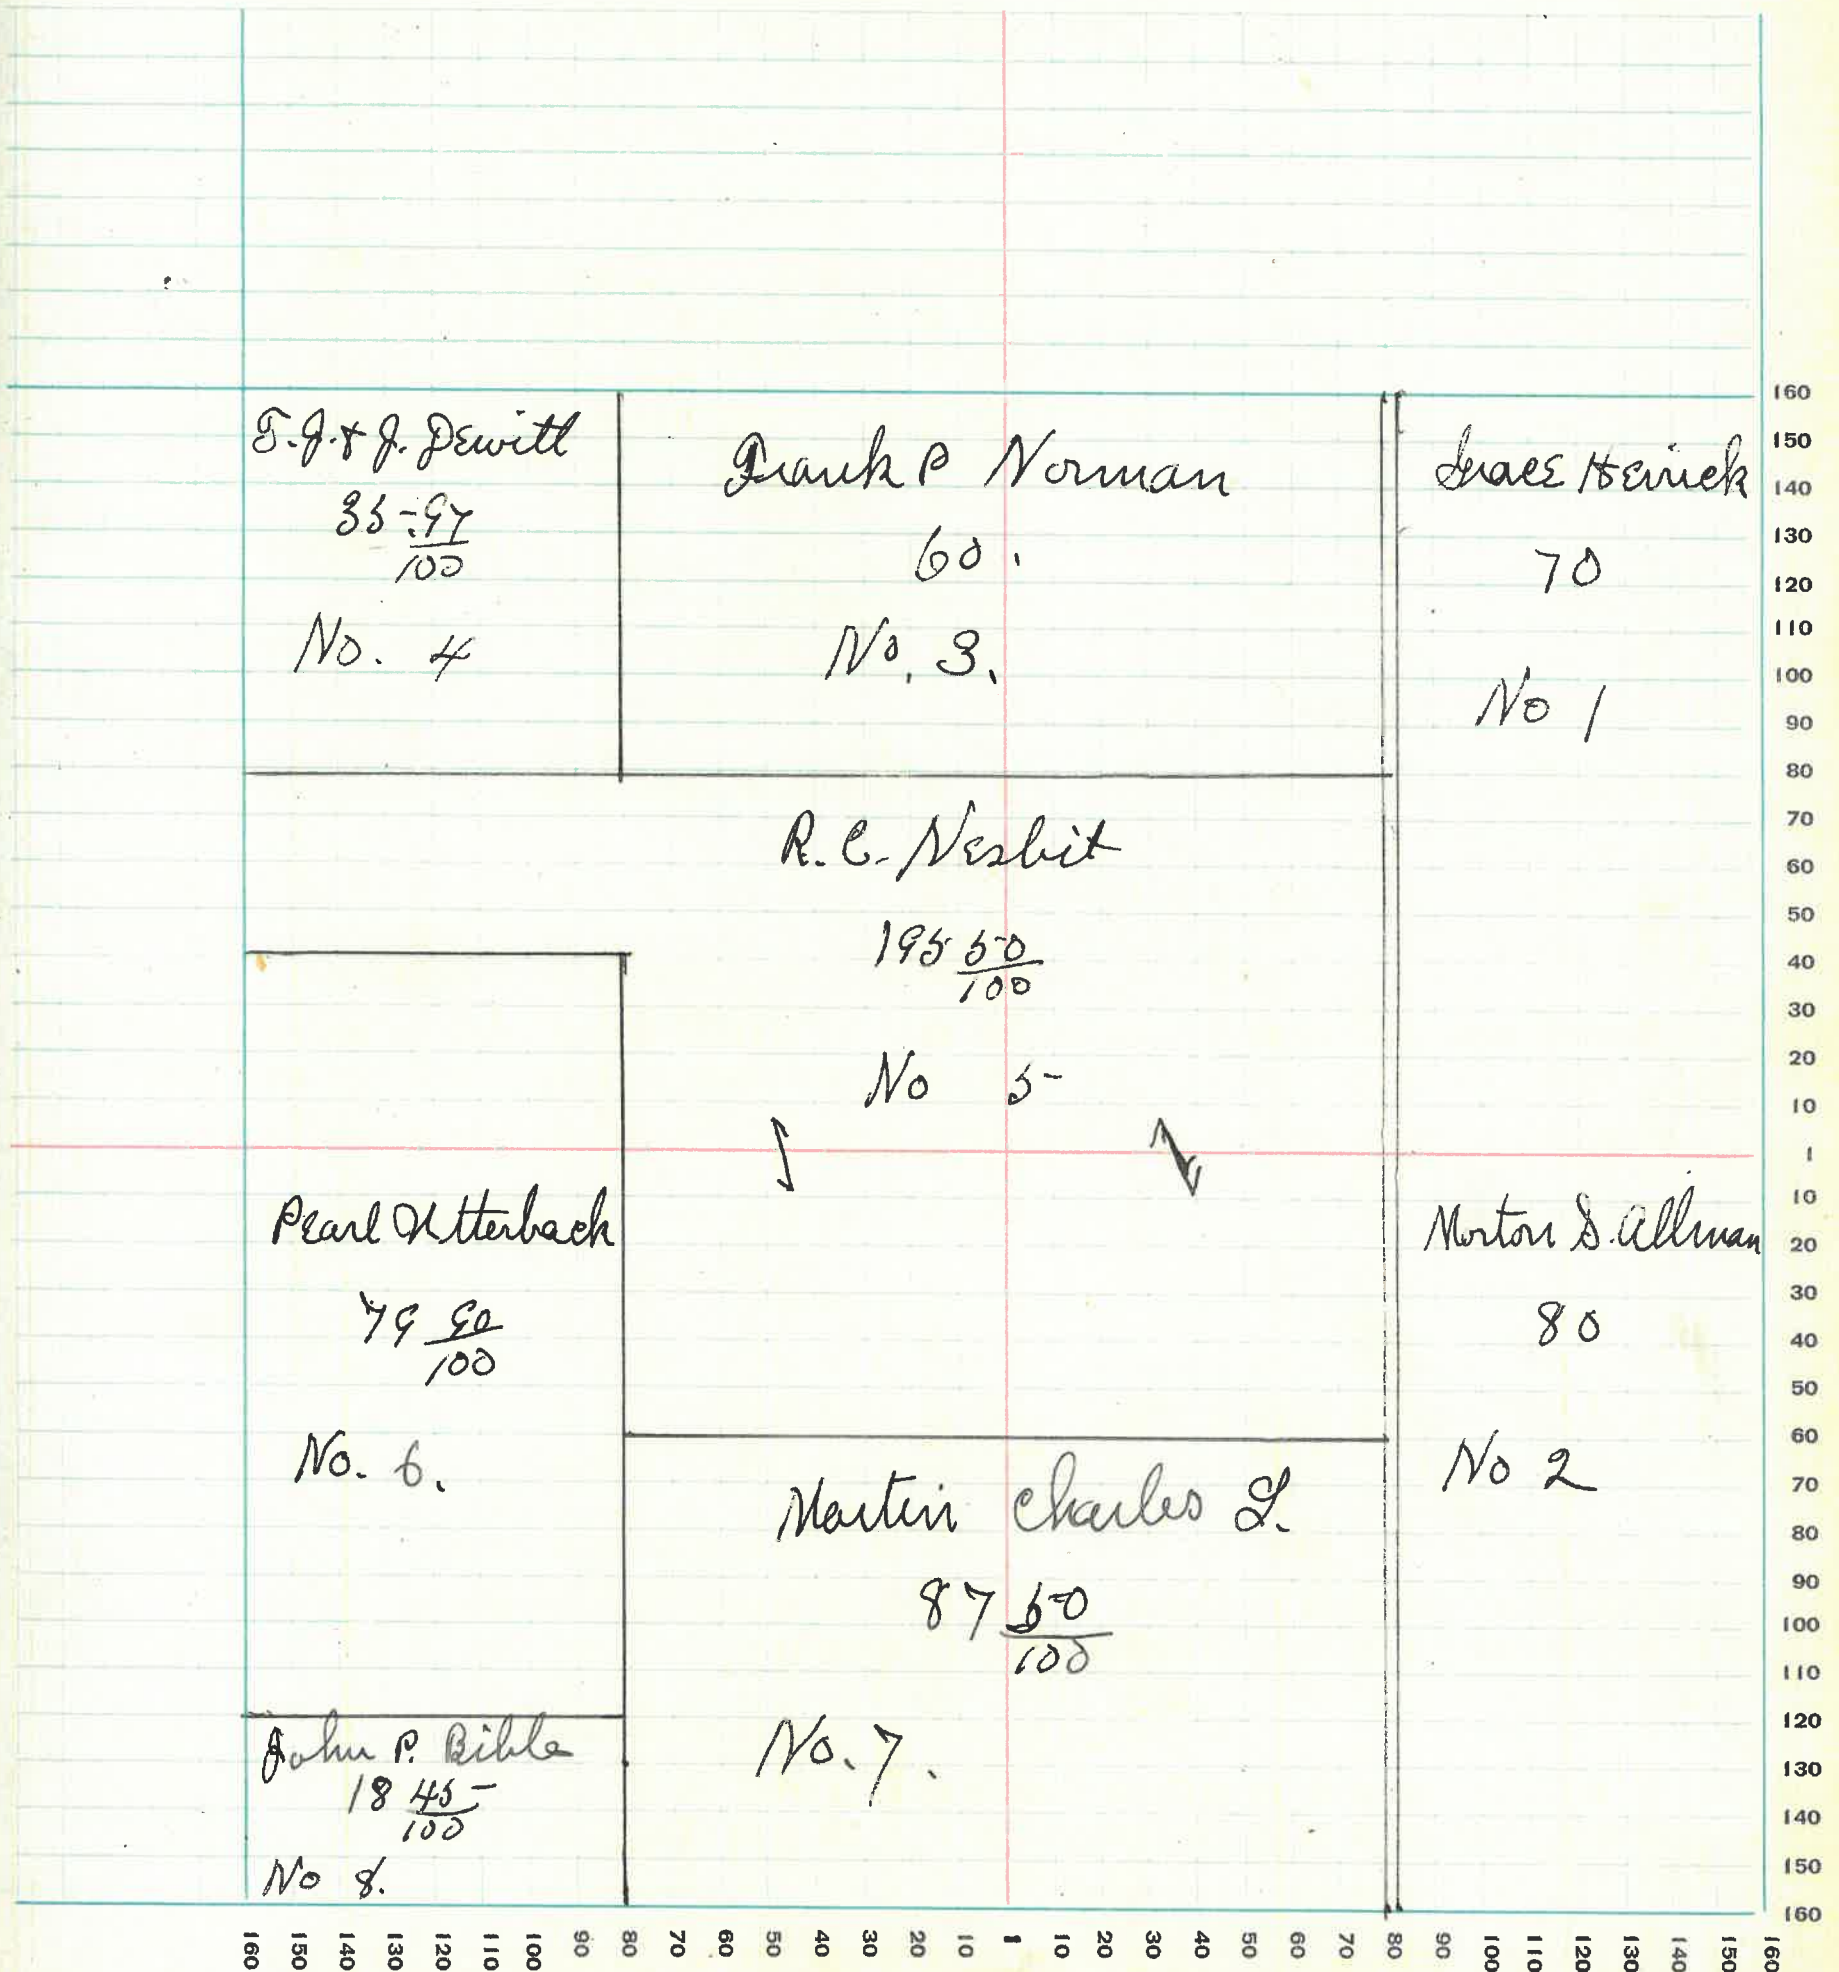 T. J. & J. Dewitt
35 97/100
No. 4
Frank P Norman
60.
No. 3.
Grace Herrick
70
No 1
R. C. Nesbit
195 50/100
No 5
Pearl Utterback
79 90/100
No. 6.
Morton S. Allman
80
No 2
Martin Charles L.
87 50/100
No. 7.
John P. Bible
18 45/100
No 8.
160
150
140
130
120
110
100
90
80
70
60
50
40
30
20
10
1
10
20
30
40
50
60
70
80
90
100
110
120
130
140
150
160
160 150 140 130 120 110 100 90 80 70 60 50 40 30 20 10 1 10 20 30 40 50 60 70 80 90 100 110 120 130 140 150 160